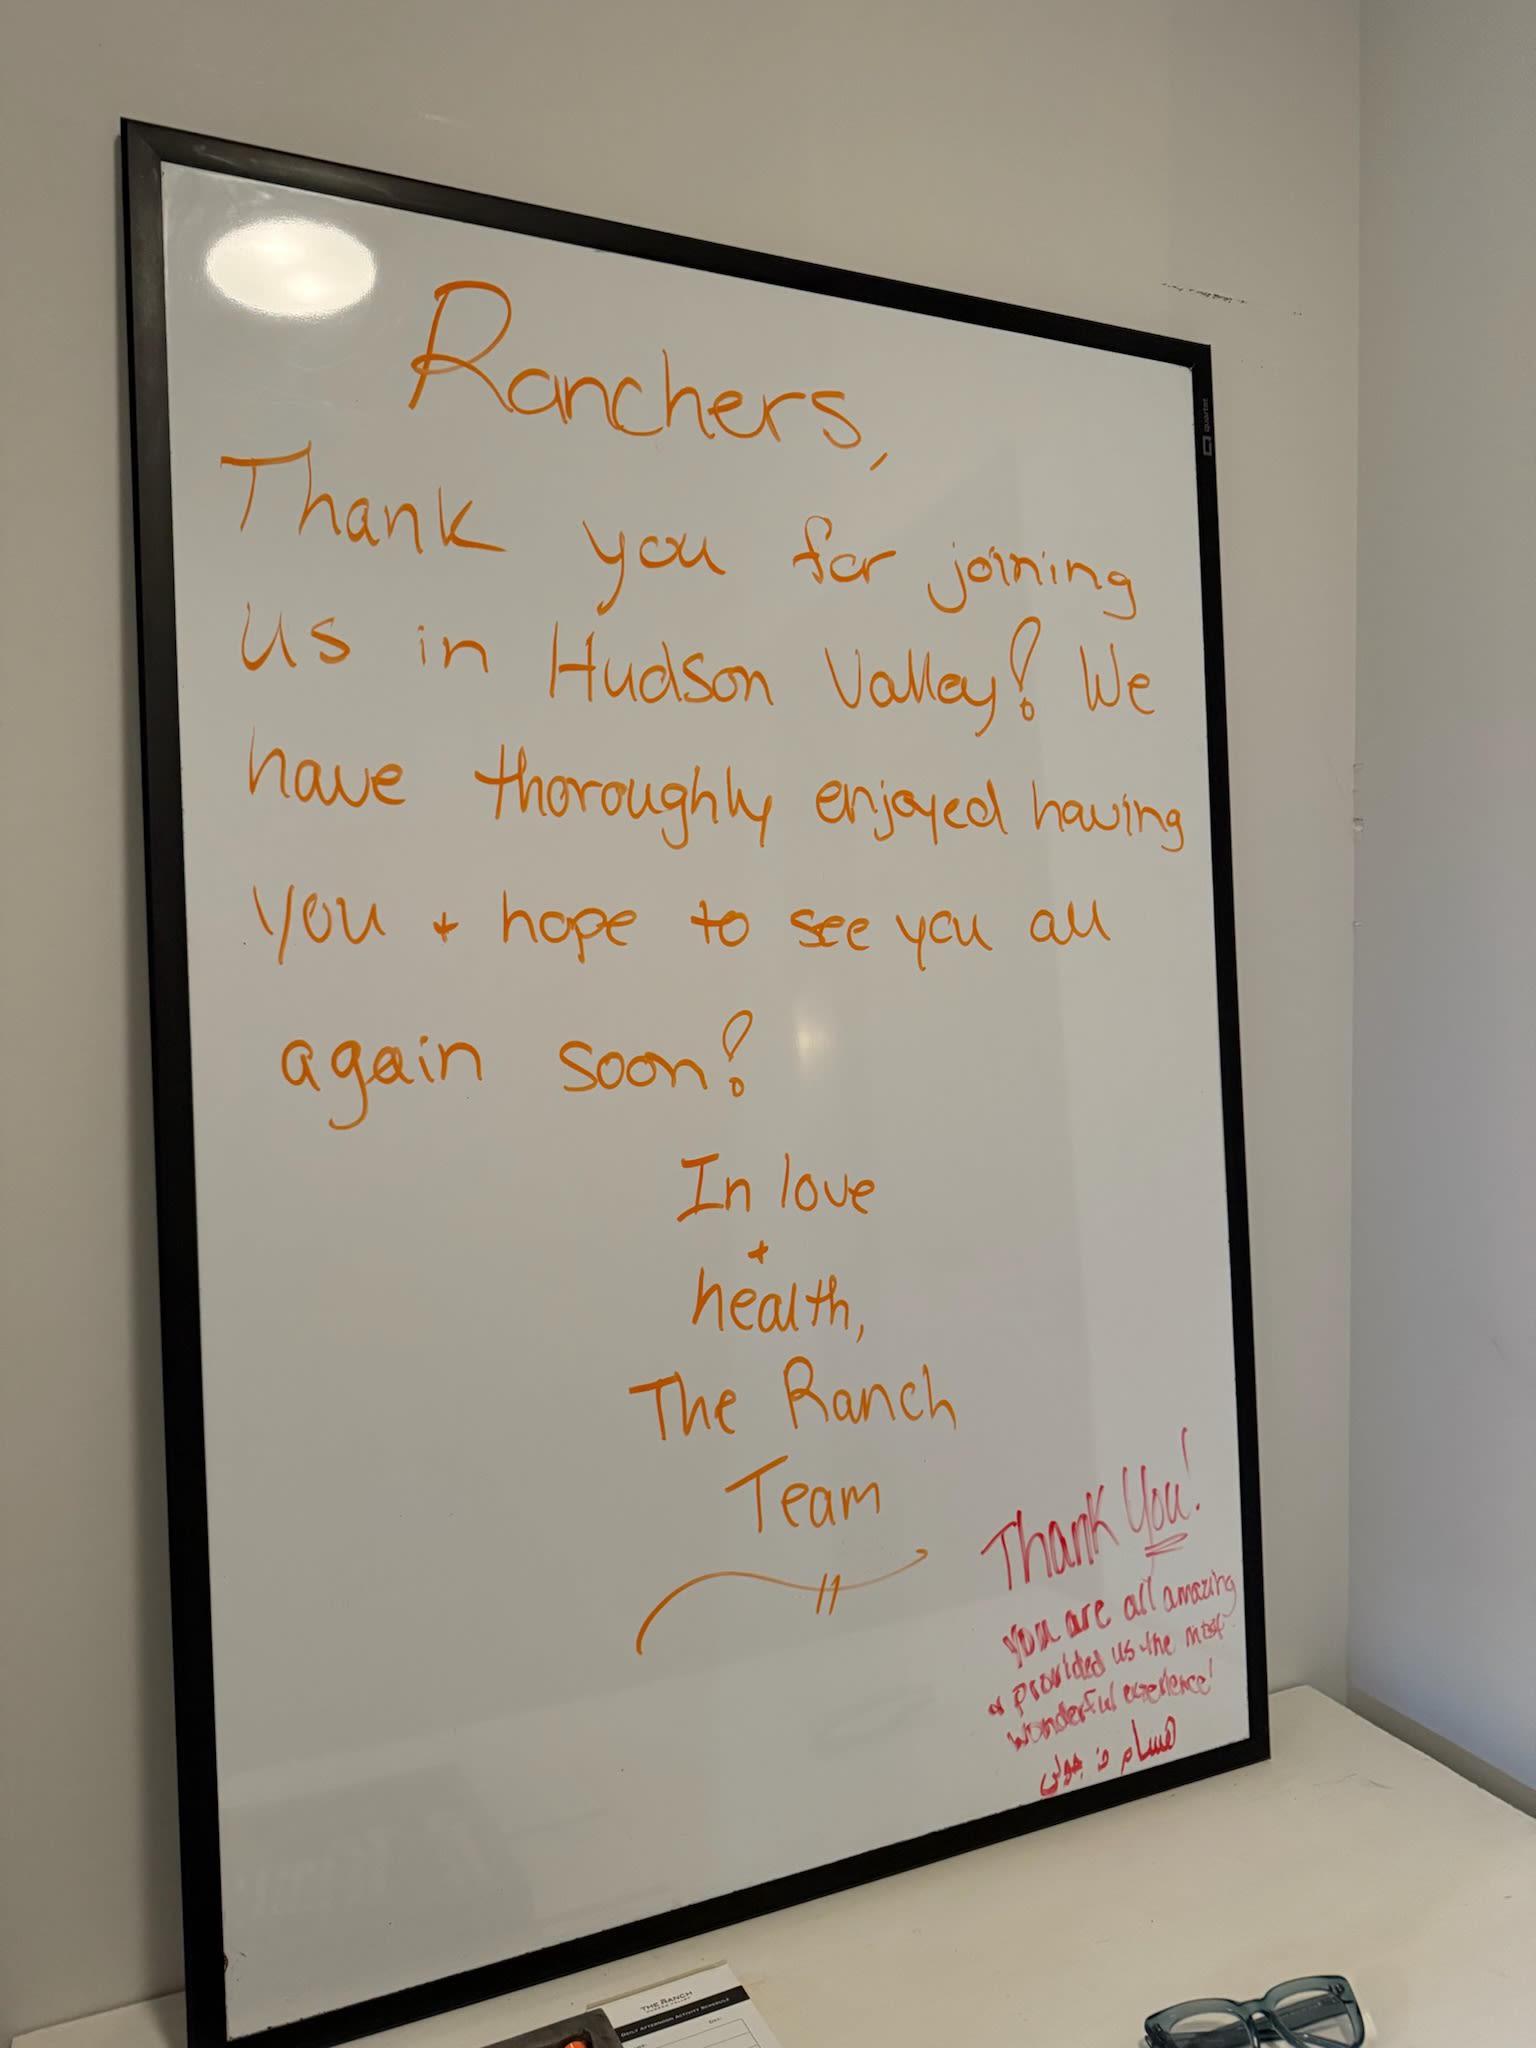 Ranchers,
Thank you for joining
us in Hudson Valley! We
have thoroughly enjoyed having
you + hope to see you all
again soon!
In love
+
health,
The Ranch
Team
Thank You!
you are all amazing
& provided us the most
wonderful experience!
هسام جولي
quartet
THE RANCH
HUDSON VALLEY
DAILY AFTERNOON ACTIVITY SCHEDULE
DAY: